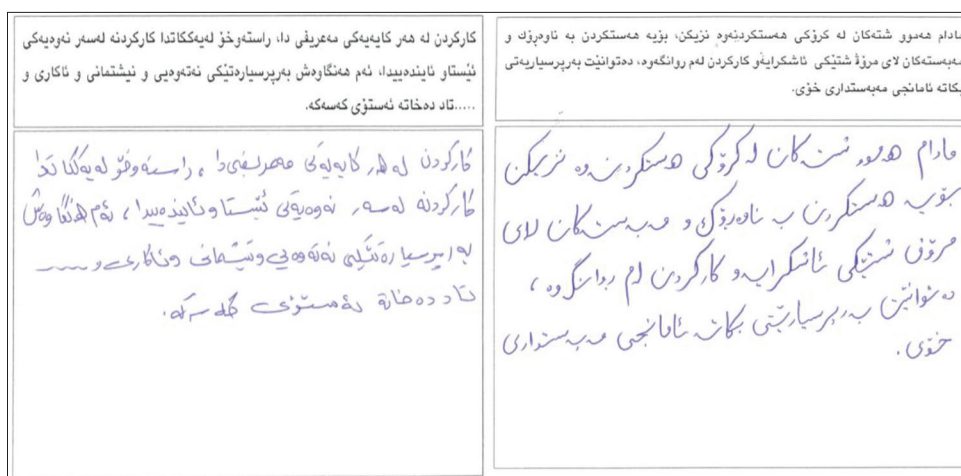 مادام هەموو شتەکان لە کرۆکی هەستکردنەوە نزیکن، بۆیە هەستکردن بە ناوەرۆک و
مەبەستەکان لای مرۆڤ شتێکی ئاشکرایەو کارکردن لەم روانگەوە، دەتوانێت بەرپرسیاریەتی
بکاتە ئامانجی مەبەستداری خۆی.
مادام هەموو شتەکان لە کرۆکی هەستکردنەوە نزیکن
بۆیە هەستکردن بە ناوەرۆک و مەبەستەکان لای
مرۆڤ شتێکی ئاشکرایە و کارکردن لەم روانگەوە ،
دەتوانێت بەرپرسیارێتی بکاتە ئامانجی مەبەستداری
خۆی .
کارکردن لە هەر کایەیەکی مەعریفی دا، راستەوخۆ لەیەککاتدا کارکردنە لەسەر نەوەیەکی
ئێستاو ئایندەییدا، ئەم هەنگاوەش بەرپرسیارەتێکی نەتەوەیی و نیشتمانی و ئاکاری و
.....تاد دەخاتە ئەستۆی کەسەکە.
کارکردن لە هەر کایەیەکی مەعریفی دا ، راستەوخۆ لەیەککاتدا
کارکردنە لەسەر نەوەیەکی ئێستا و ئایندەییدا ، ئەم هەنگاوەش
بەرپرسیارەتێکی نەتەوەیی و نیشتمانی و ئاکاری و .....
تاد دەخاتە ئەستۆی کەسەکە.